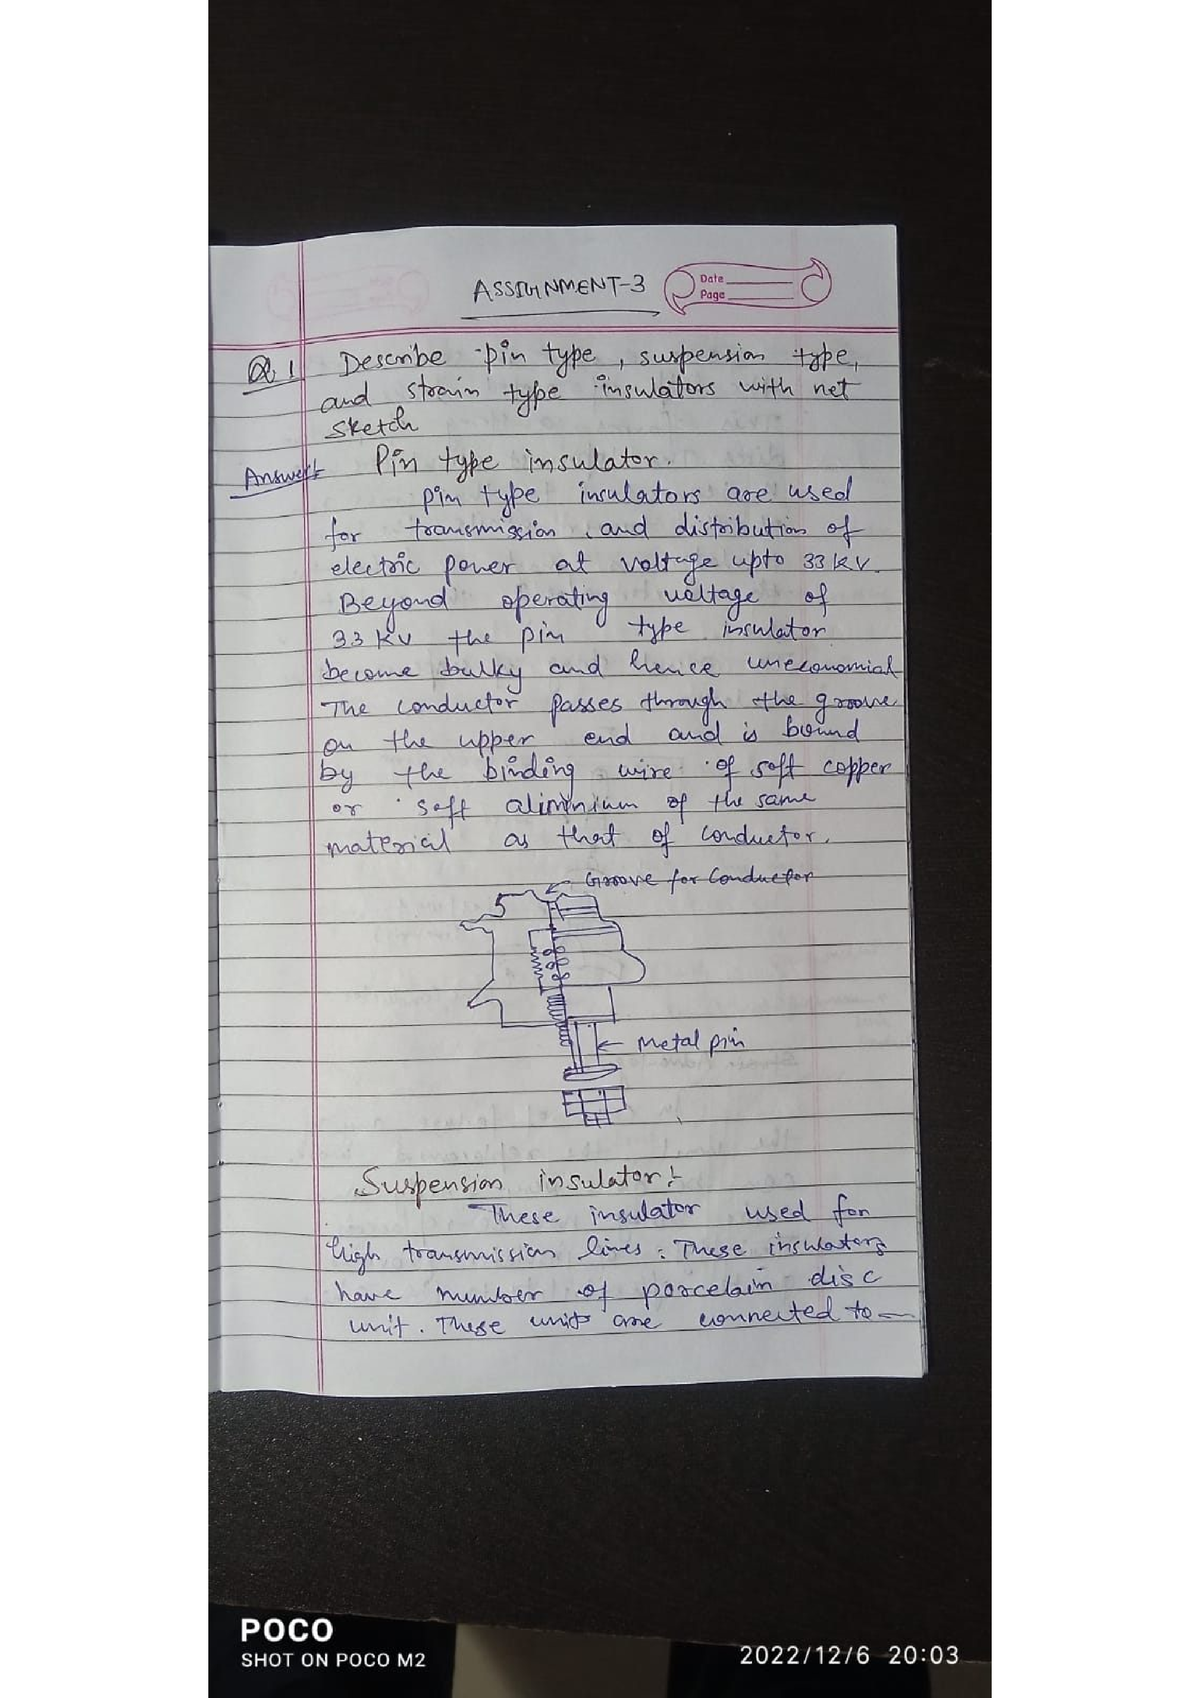 ASSIGNMENT-3
Date
Page
Q.1 Describe pin type, suspension type,
and strain type insulators with net
sketch
Answer:- Pin type insulator.
pin type insulators are used
for transmission and distribution of
electric power at voltage upto 33 kV.
Beyond operating voltage of
33 KV the pin type insulator
become bulky and hence uneconomial
The conductor passes through the groove
on the upper end and is bound
by the binding wire of soft copper
or soft aliminium of the same
material as that of conductor.
Groove for Conductor
Metal pin
Suspension insulator:-
These insulator used for
high transmission lines. These insulators
have number of porcelain disc
unit. These units are connected to
POCO
SHOT ON POCO M2
2022/12/6 20:03